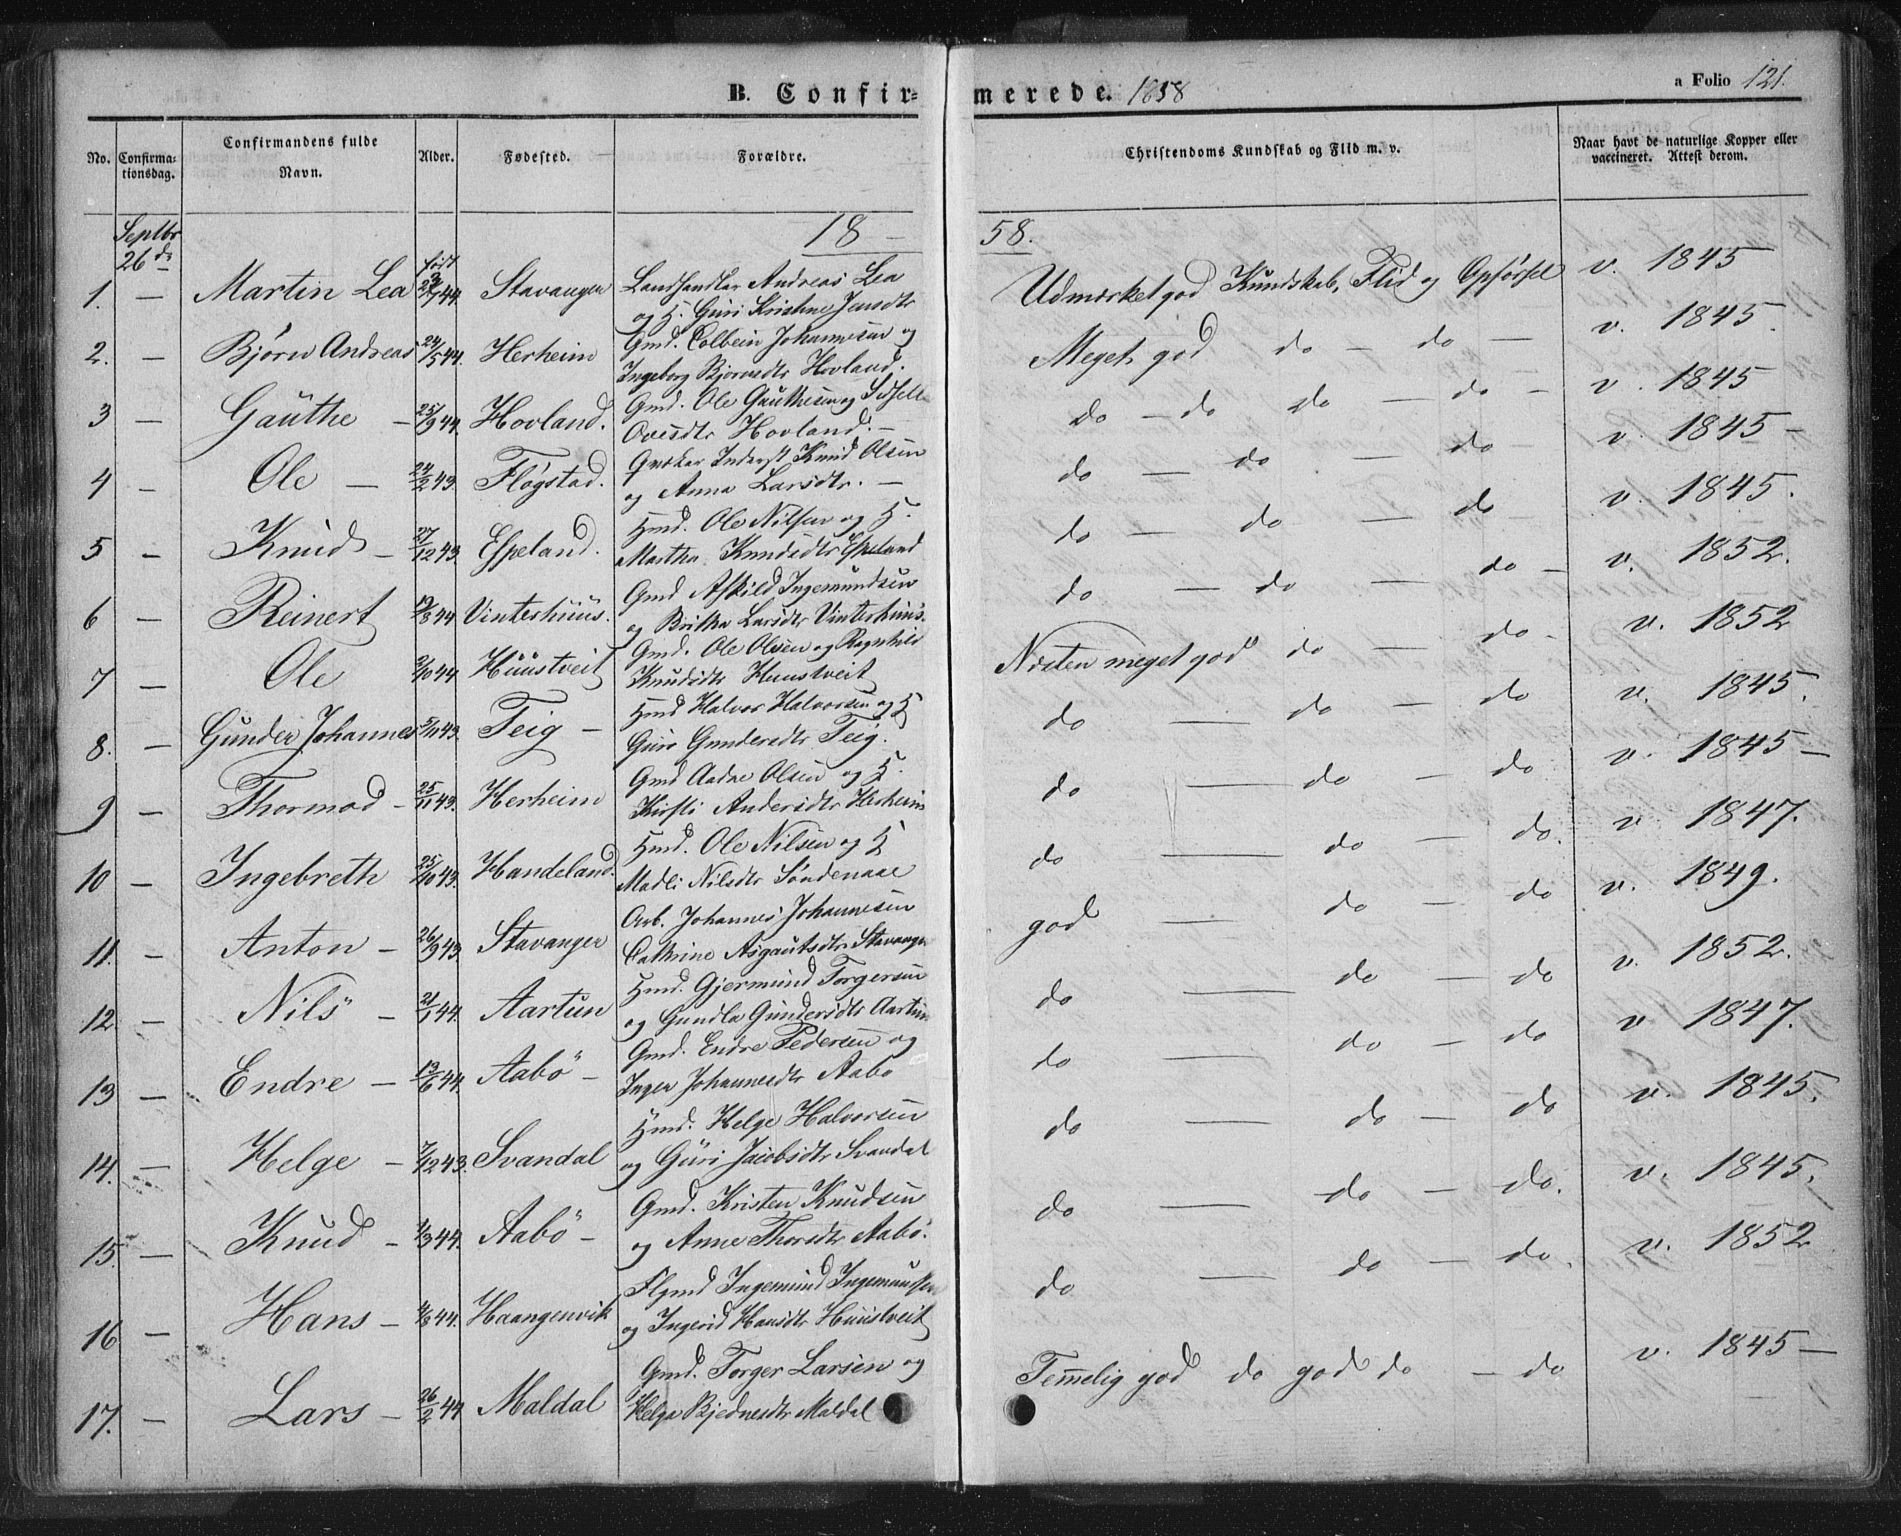 B. Confir=
merede. 1858
a Folio 121.
No.
Confirma=
tionsdag.
Confirmandens fulde
Navn.
Alder.
Fødested.
Forældre.
Christendoms Kundskab og Flid m. v.
Naar havt de naturlige Kopper eller
vaccineret. Attest derom.
Septbr
26de
18 — 58.
født
1. — Martin Lea 44. Stavanger Landhandler Andreas Lea
og H. Guri Kristine Jensdtr
Udmærket god Kundskab, Flid og Opførsel v. 1845
2. — Bjørn Andreas 24/5 44. Herheim Gmd. Colbein Johannesen og
Ingeborg Bjørnsdtr Hovland.
Meget god do — do — v. 1845.
3 — Gauthe — 25/9 44. Hovland. Gmd. Ole Gauthesen og Sidselle
Ovesdtr Hovland. —
do — do do — do — v. 1845
4 — Ole — 24/2 43. Fløgstad. Inderst Knud Olsen
og Anna Larsdtr. —
do — do — do v. 1845 —
5 — Knud — 27/12 43. Espeland. Hmd. Ole Nilsen og H.
Martha Knudsdtr Espeland
do — do — do v. 1845.
6 — Reinert 19/8 44 Vinterhuus. Gmd Askild Ingemundsen
og Britha Larsdtr Vinterhuus.
do — do — do — v. 1852.
7 — Ole 2/10 44 Huustveit Gmd. Ole Olsen og Ragnhild
Knudsdtr Huustveit
Næsten meget god do — do — v. 1852
8. — Gunder Johannes 5/11 43. Teig — Hmd Halvor Halvorsen og H
Guro Gundersdtr Teig.
do — do — do v. 1845.
9 — Thormod — 25/11 43. Herheim Gmd Aadne Olsen og H.
Kirsti Andersdtr Herheim
do — do — do v. 1845 —
10 — Ingebreth 25/10 43. Handeland. Hmd. Ole Nilsen og H
Madli Nilsdtr Søndenaae
do — do — do. v 1847.
11. — Anton — 26/9 43. Stavanger Arb. Johannes Johannesen
Cathrine Asgautsdtr Stavanger
god — do — do v. 1849.
12 — Nils — 21/1 44. Aartun Hmd. Gjermund Torgersen
og Gundla Gundersdtr Aartun
do — do — do v. 1852.
13 — Endre — 13/6 44. Aabö — Gmd. Endre Pedersen og
Inger Johannesdtr Aabö
do — do — do v 1847.
14. — Helge — 7/12 43. Svandal Hmd. Helge Halvorsen
og Guri Jacobsdtr Svandal
do — do — do v. 1845.
15. — Knud — 44. Aabö — Gmd. Kristen Knudsen
og Anne Thorsdtr Aabö.
do — do — do. v. 1845.
16 — Hans — 44. Haangenvik Ingemund Ingemundsen
og Ingerid Hansdtr Huustveit
do — do — do. v. 1852
17. — Lars — 26/2 44 Maldal Gmd. Torger Larsen og
Helga Bjednesdtr Maldal
Temelig god do god do — do v. 1845 —